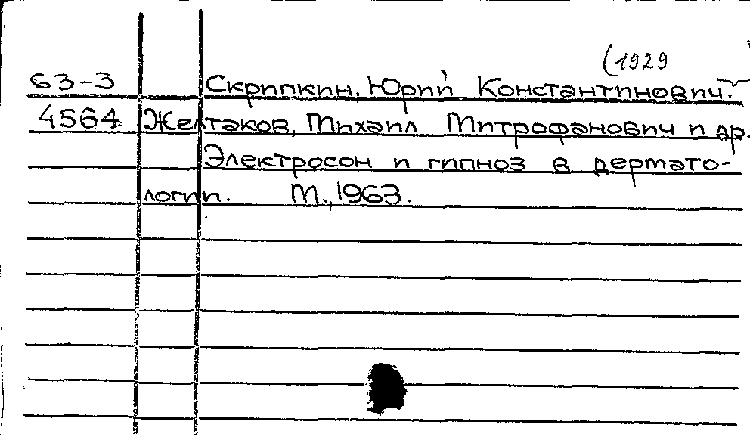 (1929
63-3 Скрипкин, Юрий Константинович.
4564 Желтаков, Михаил Митрофанович и др.
Электросон и гипноз в дермато-
логии. М., 1963.